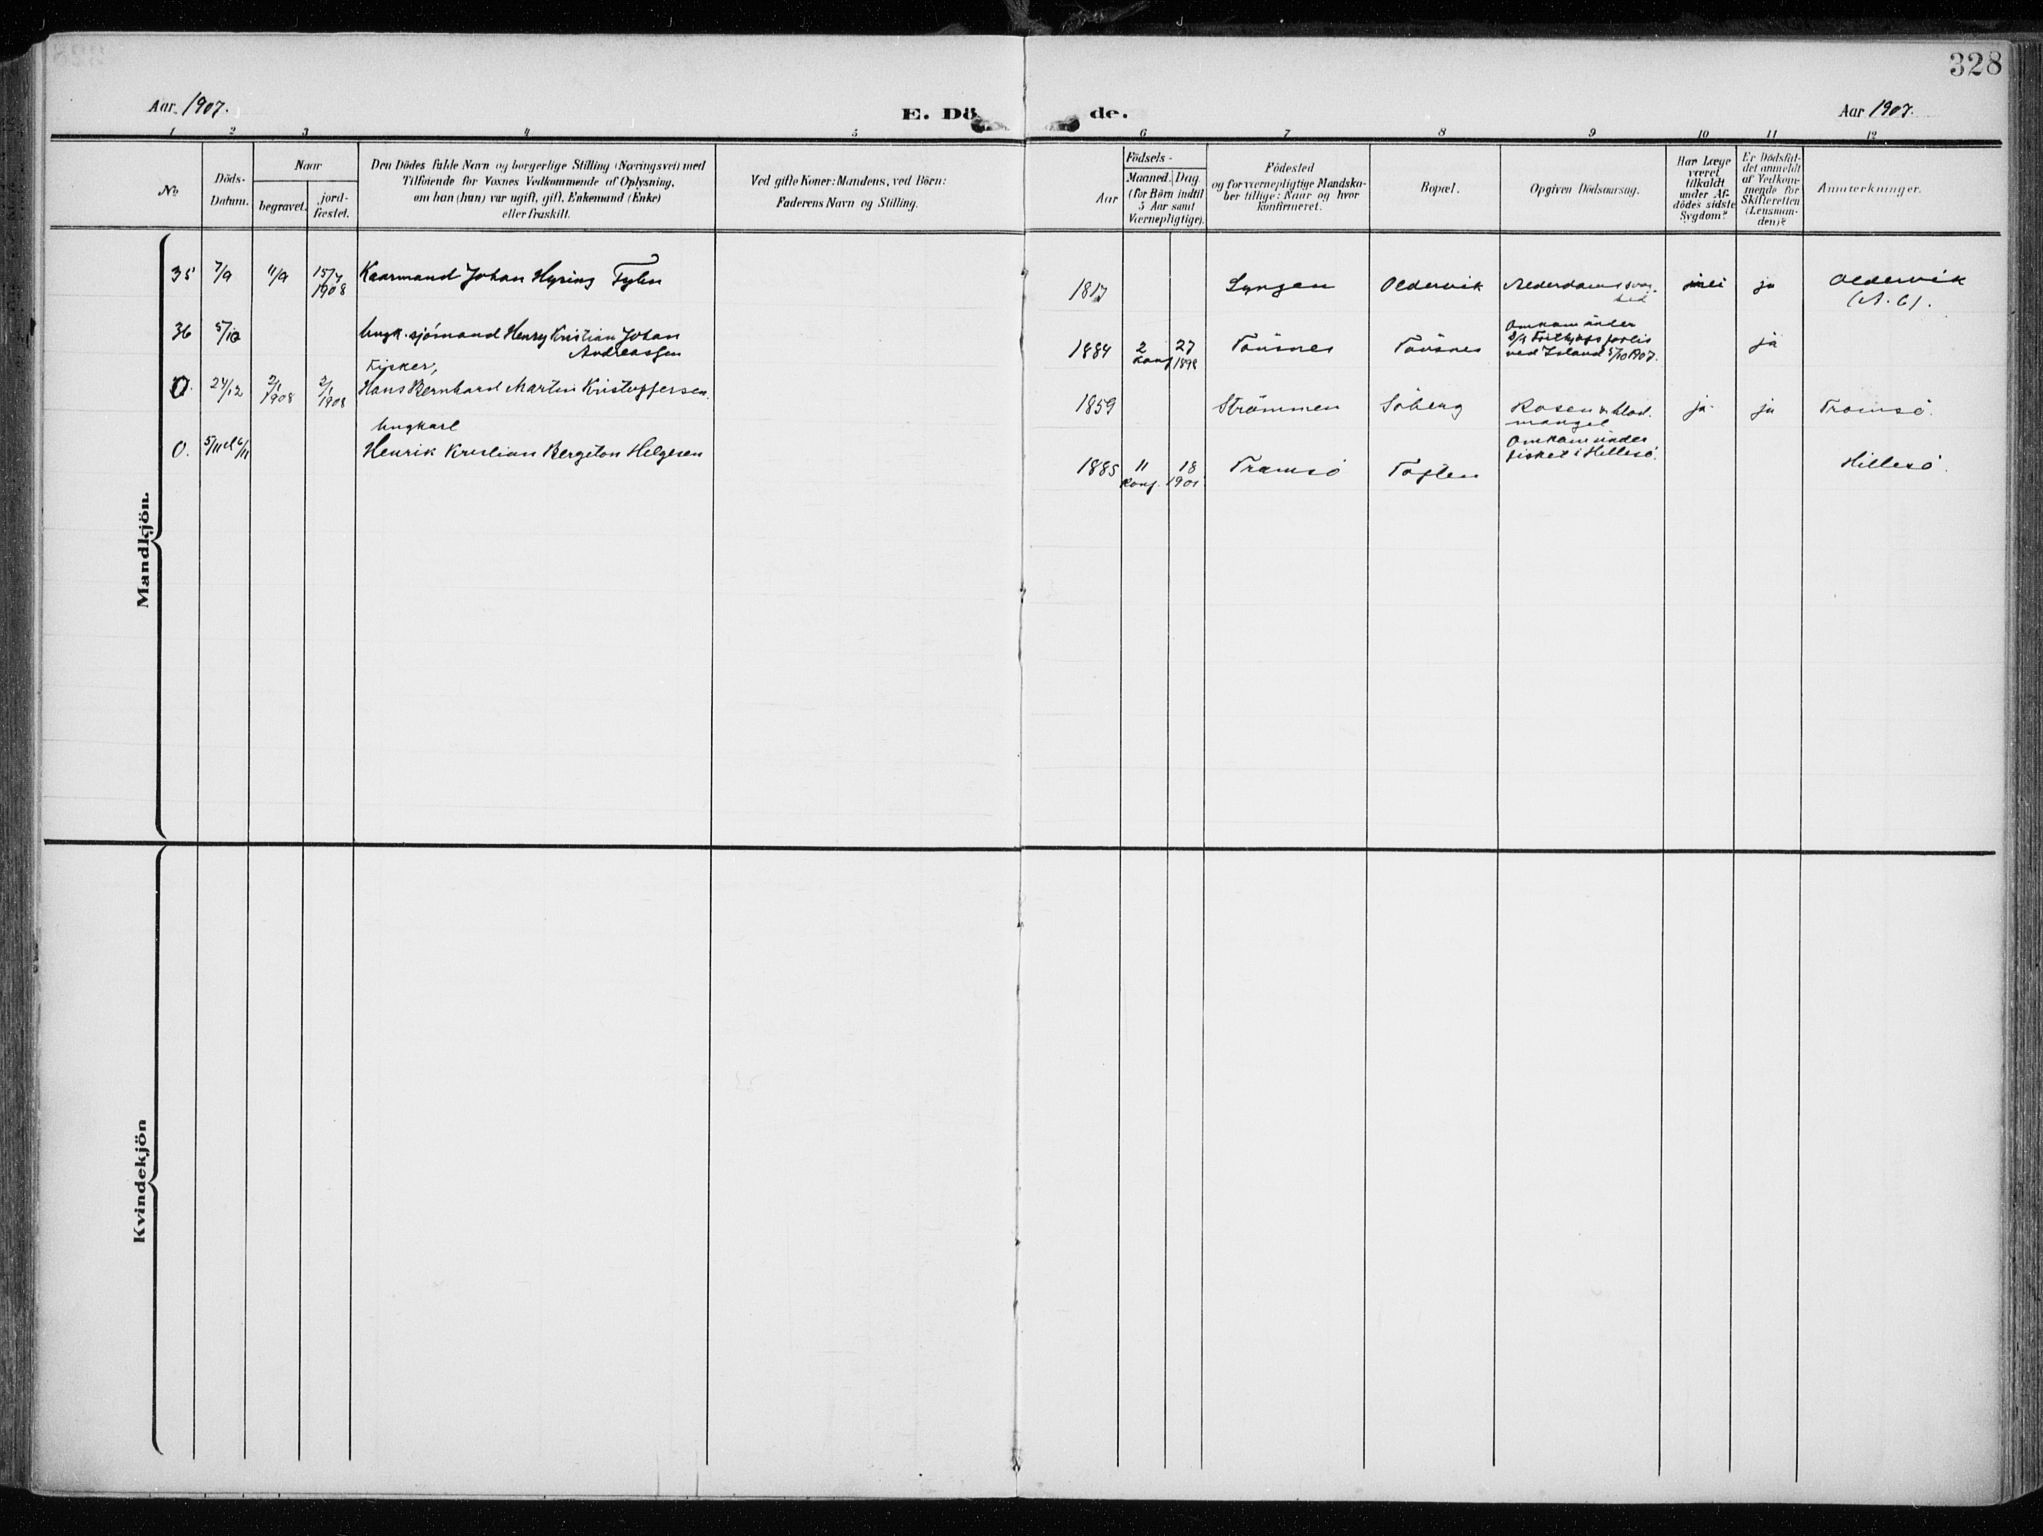 328
Aar 1907.
E. Dö
de.
Aar 1907.
1 2 3 4 5 6 7 8 9 10 11 12
No
Döds-
Datum.
Naar
begravet.
jord-
fæstet.
Den Dödes fulde Navn og borgerlige Stilling (Næringsvei) med
Tilföiende for Voxnes Vedkommende af Oplysning,
om han (hun) var ugift, gift, Enkemand (Enke)
eller fraskilt.
Ved gifte Koner: Mandens, ved Börn:
Faderens Navn og Stilling.
Aar
Födsels-
Maaned. Dag
(for Börn indtil
5 Aar samt
Værnepligtige).
Födested
og for værnepligtige Mandska-
ber tillige: Naar og hvor
konfirmeret.
Bopæl.
Opgiven Dödsaarsag.
Har Læge
været
tilkaldt
under Af-
dödes sidste
Sygdom?
Er Dödsfal-
det anmeldt
af Vedkom-
mende for
Skifteretten
(Lensman-
den)?
Anmærkninger.
Mandkjön.
35 7/9 11/9 15/7 1908 Kaarmand Johan Hyring Fylin 1817 Lyngen Oldervik Alderdomssvag-
hed nei ja Oldervik
(N. 6).
36 5/10 Ungk. sjömand Henry Kristian Johan
Andreassen 1884 2 27 Tönsnes Tönsnes Omkom under
S/S Frithjofs forlis
ved Island 5/10 1907. ja
Konf. 1898
Fisker,
0. 24/12 2/1 1908 2/1 1908 Hans Bernhard Martin Kristoffersen. 1859 Strömmen Söberg Rosen & blod-
mangel ja ja Tromsö.
Ungkarl
0. 5/11 el 6/11 Henrik Kristian Bergeton Helgesen 1885 11 18 Tromsö Toften Omkom under
fisket i Hillesö. Hillesö.
Konf. 1901
Kvindekjön